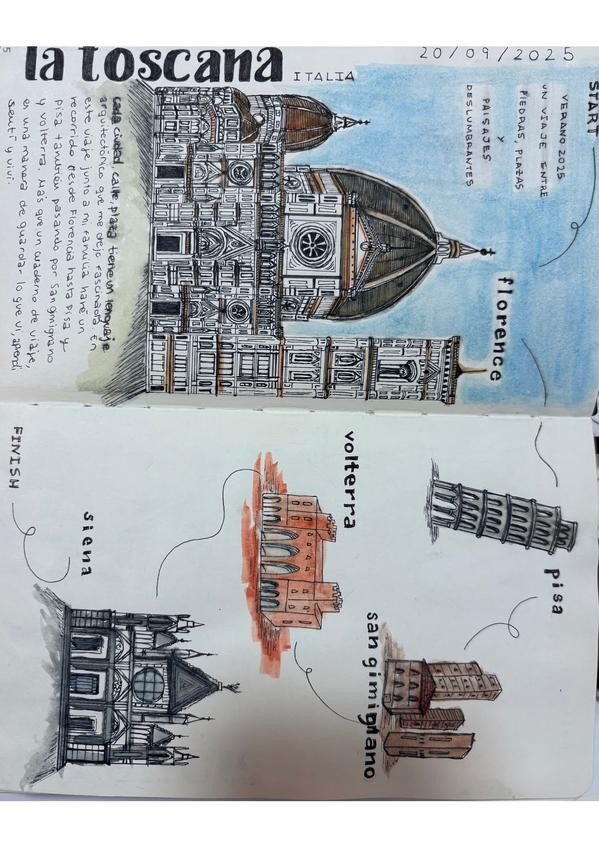 la toscana ITALIA
20/09/2025
START
VERANO 2025
UN VIAJE ENTRE
PIEDRAS, PLAZAS
Y
PAISAJES
DESLUMBRANTES
florence
cada ciudad, calle, plaza tiene un lenguaje
arquitectónico que me dejo fascinada. En
este viaje junto a mi familia haré un
recorrido desde Florencia hasta Pisa y
pisa también pasando por San Gimignano
y volterra. Más que un cuaderno de viaje,
es una manera de guardar lo que vi, aprendí
sentí y viví.
pisa
san gimignano
volterra
siena
FINISH